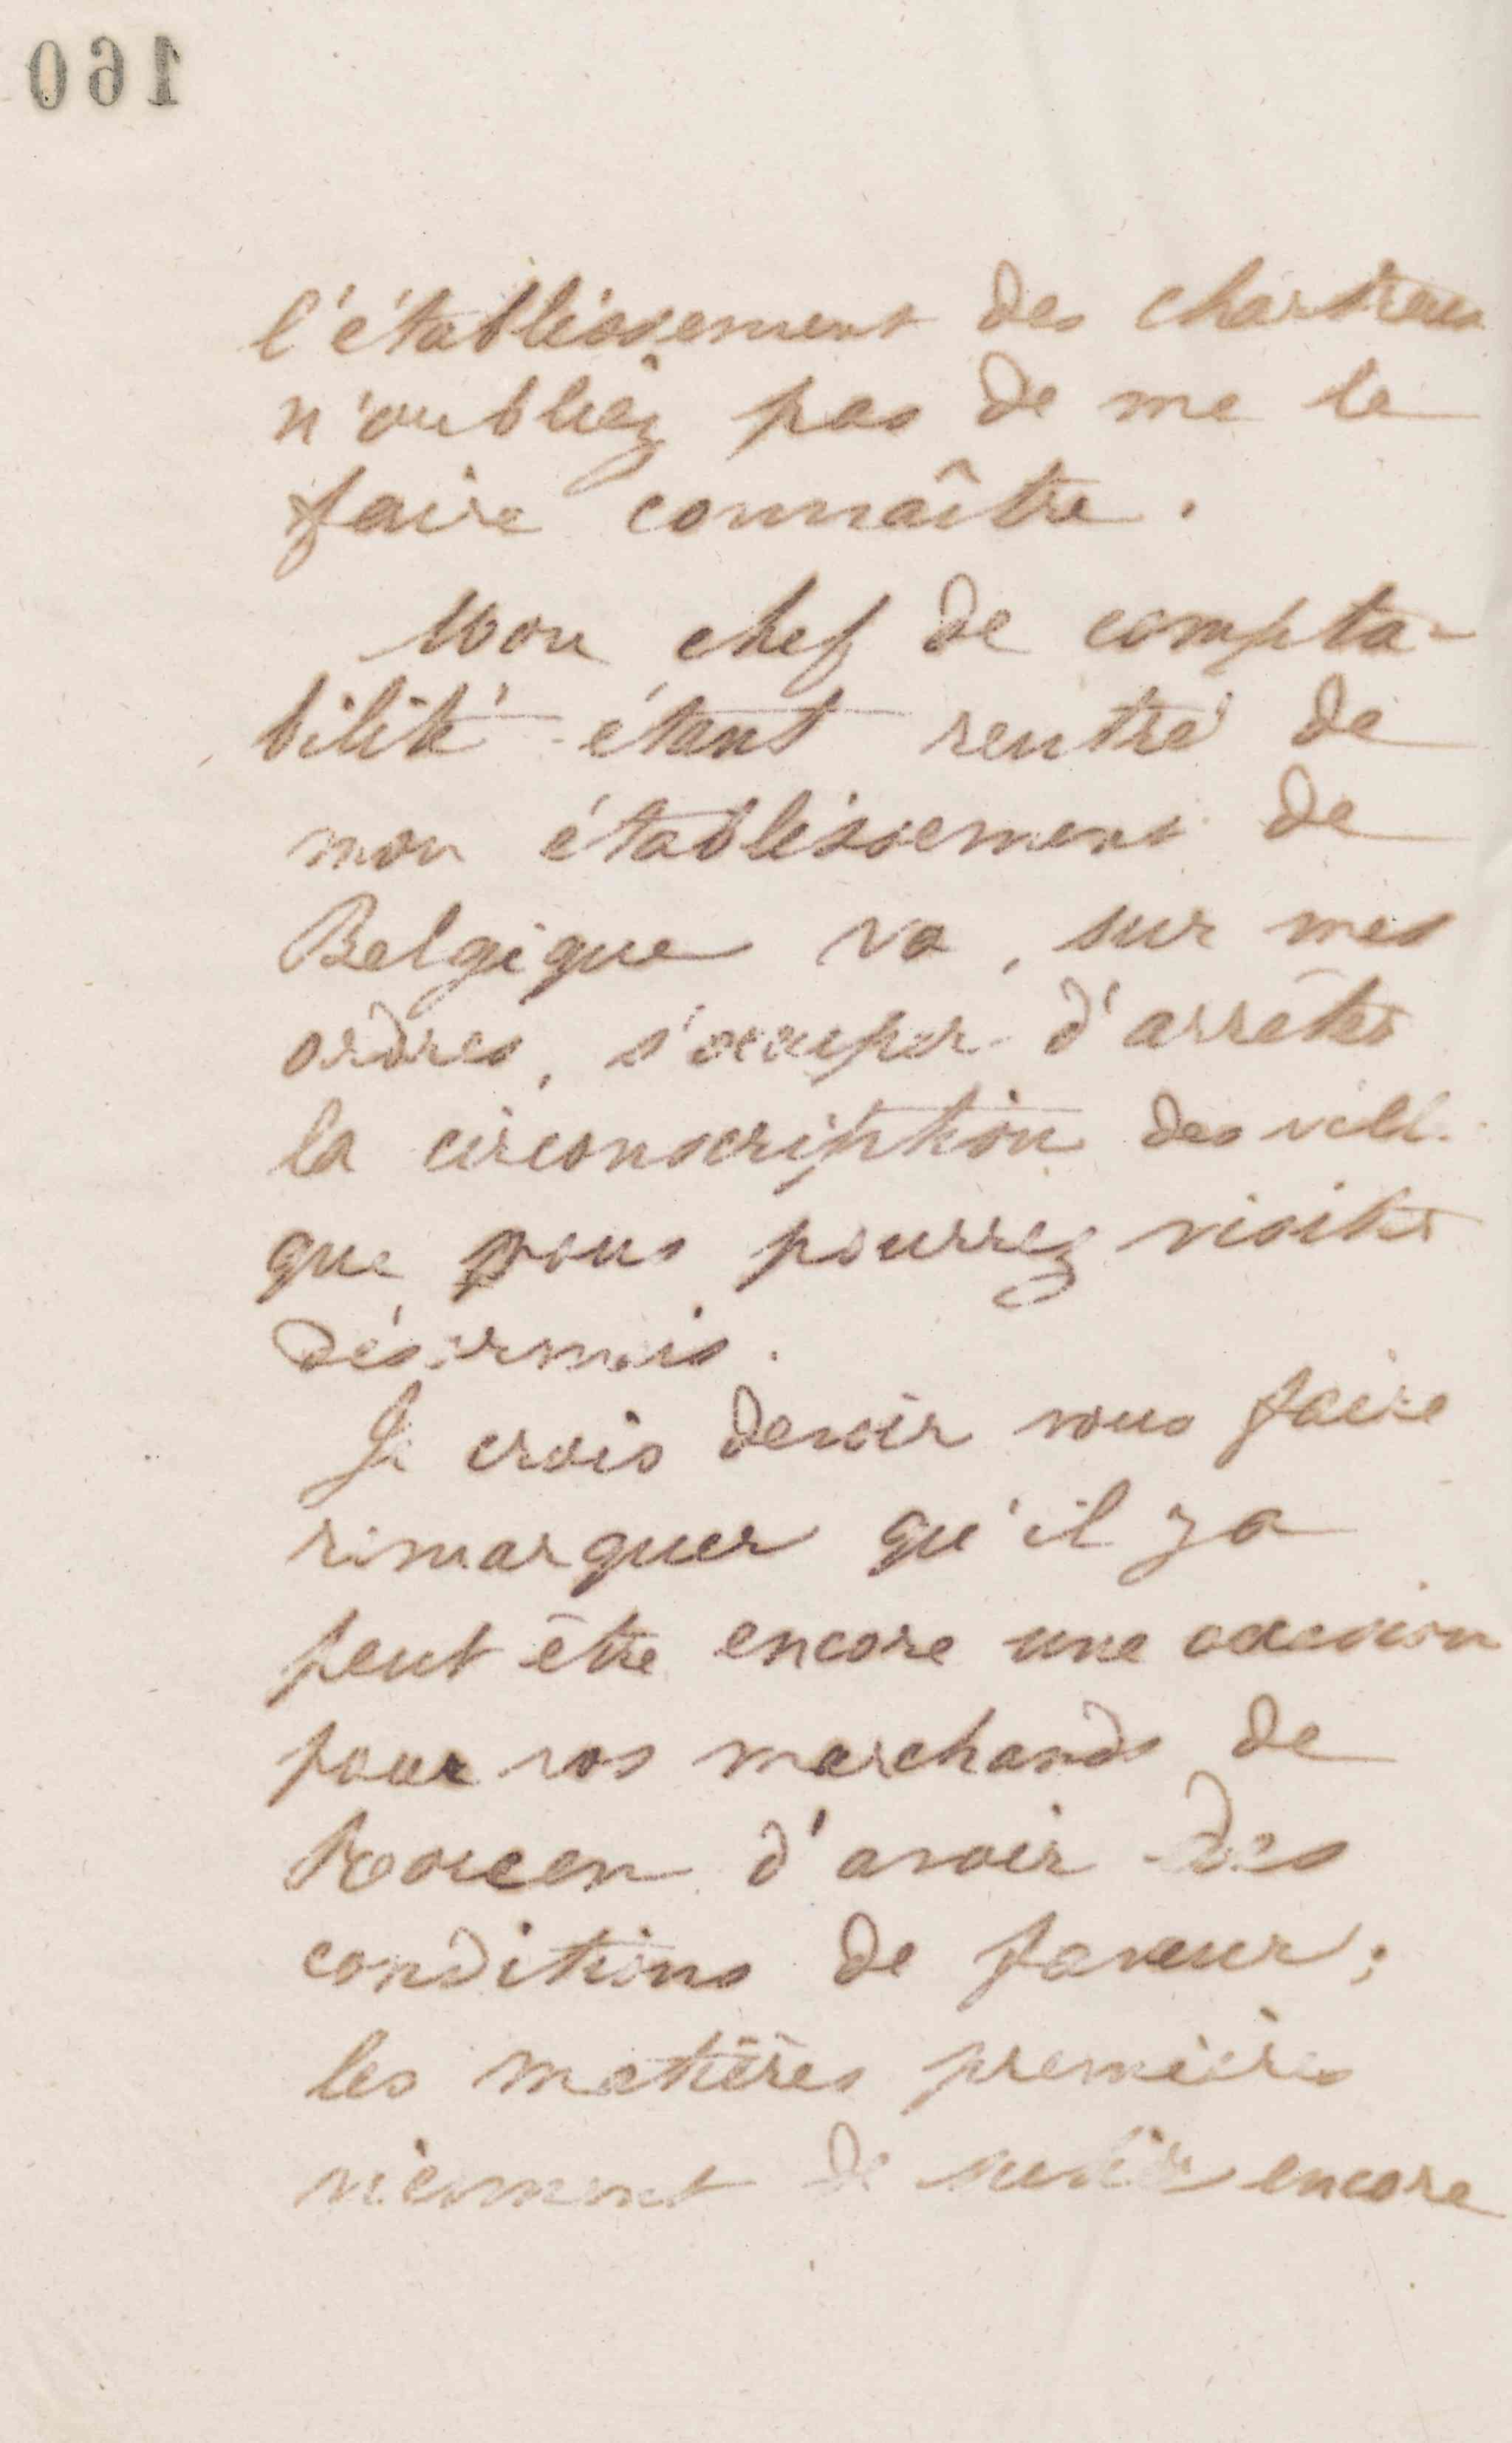 160
l'établissement des chartreux
n'oubliez pas de me le
faire connaître.
Mon chef de compta-
bilité étant rentré de
mon établissement de
Belgique va, sur mes
ordres, s'occuper d'arrêter
la circonscription des vill
que vous pourrez visiter
désormais.
Je crois devoir vous faire
remarquer qu'il y a
peut être encore une occasion
pour vos marchands de
Rouen d'avoir des
conditions de faveur;
les matières premières
viennent de subir encore